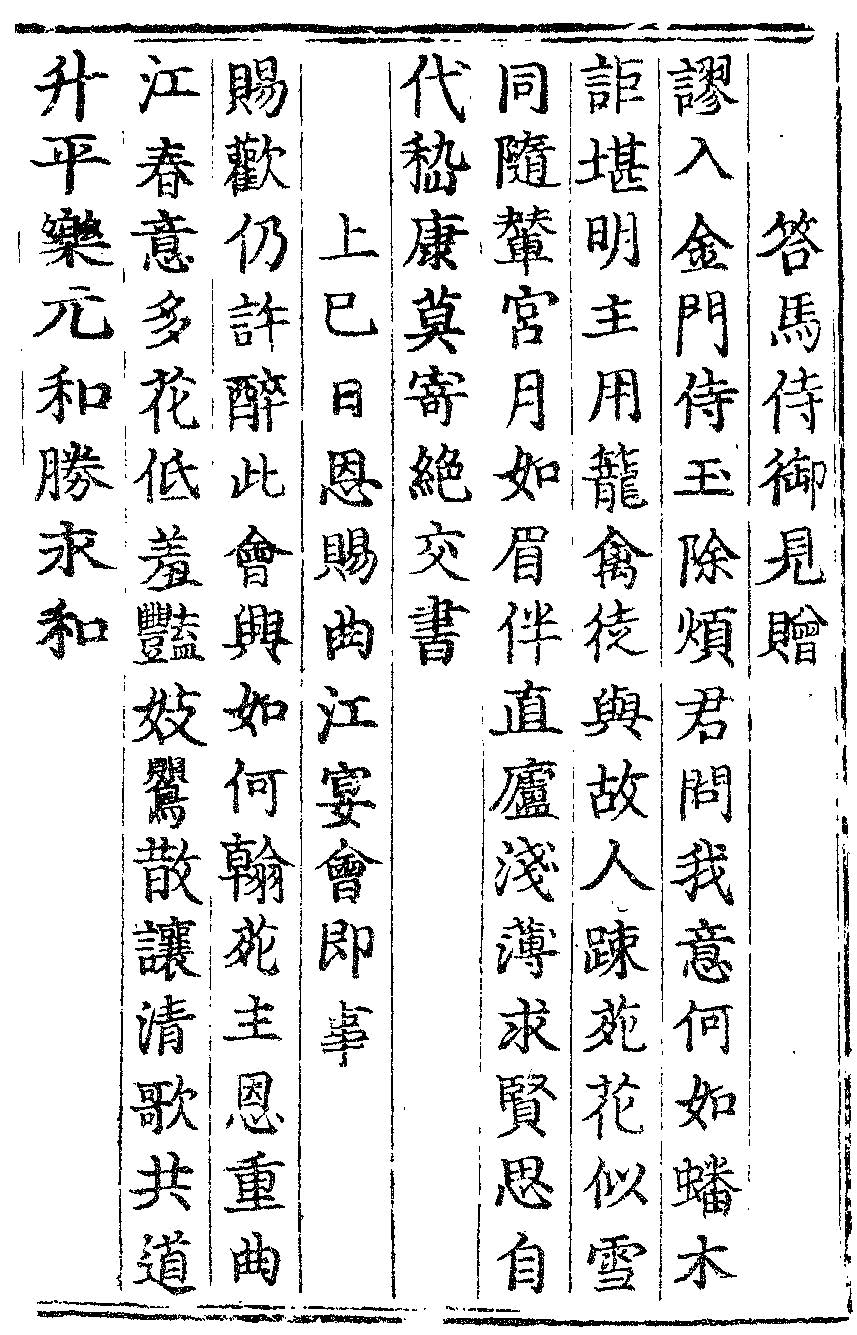 答馬侍御見贈
謬入金門侍玉除煩君問我意何如蟠木
詎堪明主用籠禽徒與故人踈苑花似雪
同隨輦宮月如眉伴直廬淺薄求賢思自
代嵇康莫寄絶交書
上巳日恩賜曲江宴會即事
賜歡仍許醉此會興如何翰苑主恩重曲
江春意多花低羞豔妓鶯散讓清歌共道
升平樂元和勝永和